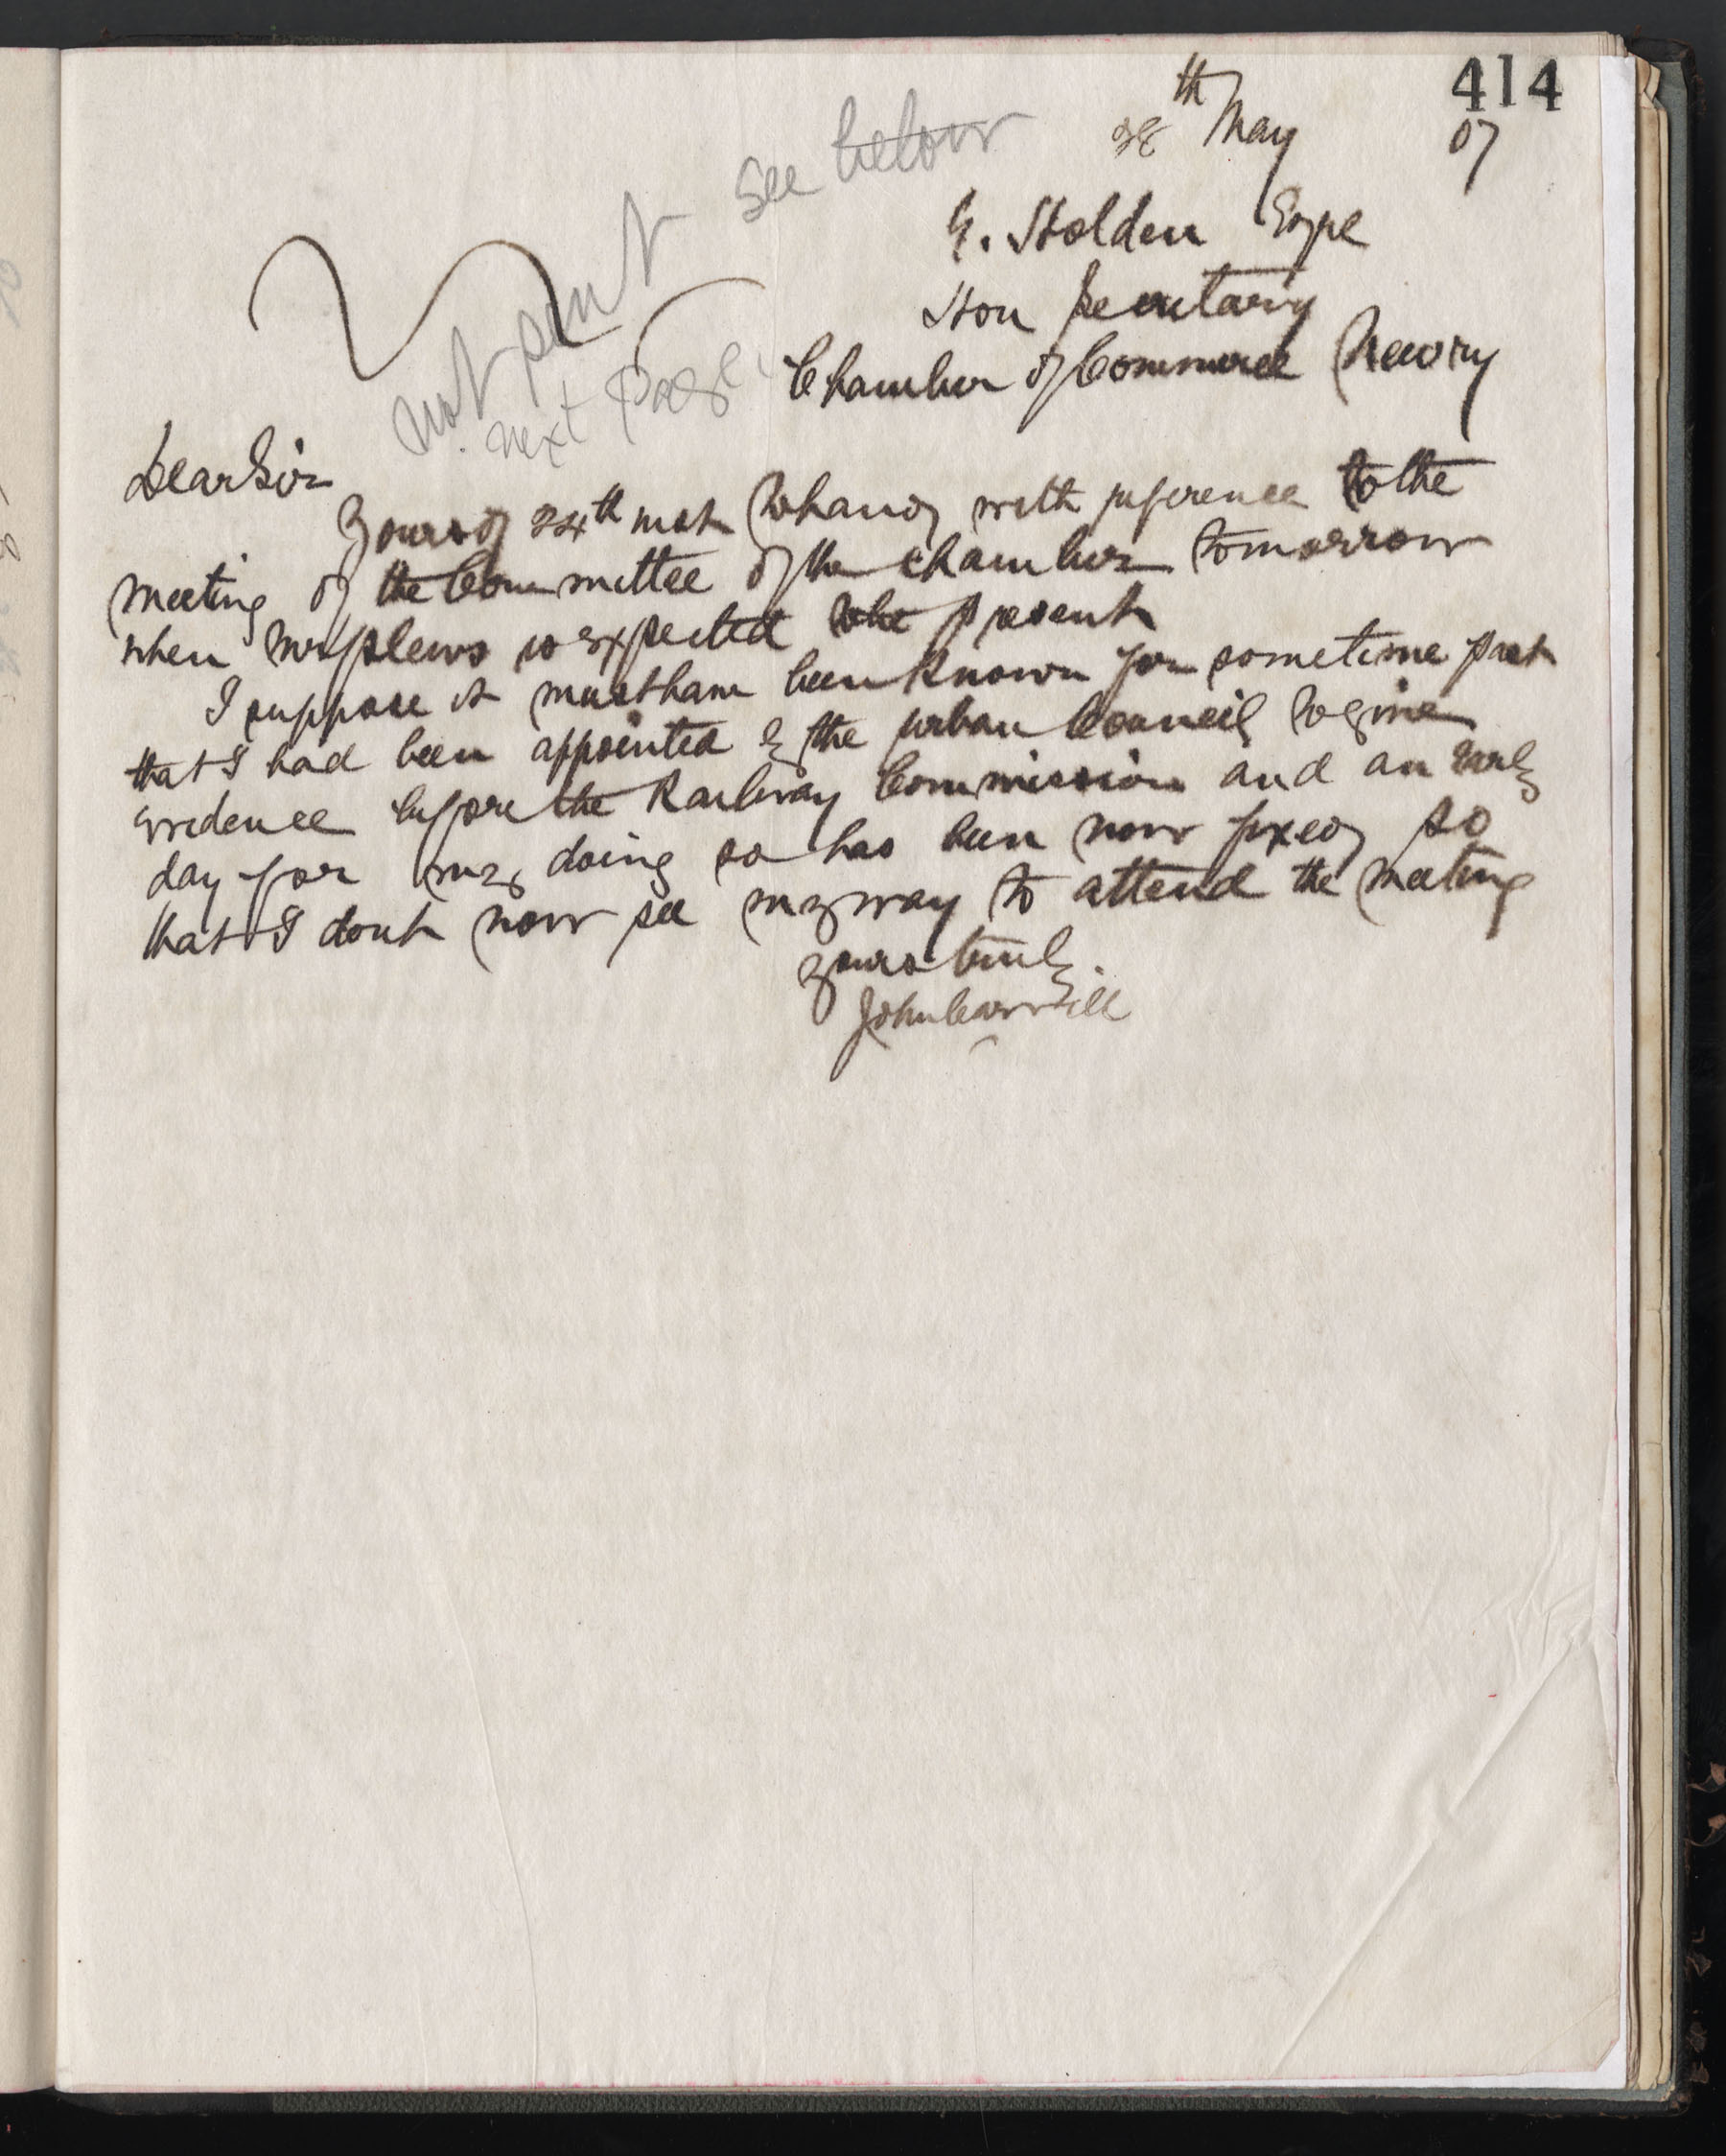 414
28th May 07
see below
G. Holden Esqre
Hon Secretary
not sent
next page
Chamber of Commerce Newry
Dear Sir
Yours of 24th inst to hand with reference to the
meeting of the Committee of the Chamber tomorrow
when Mr Plews is expected to be present
I suppose it must have been known for sometime past
that I had been appointed by the urban Council to give
evidence before the Railway Commission and an early
day for my doing so has been now fixed so
that I dont now see my way to attend the meeting
yours truly
John Carvill